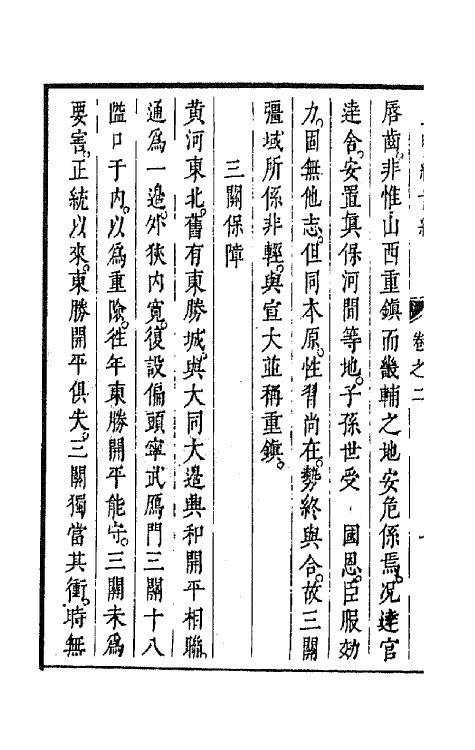 卷之二
唇齒。非惟山西重鎮而畿輔之地安危係焉。况達官
達舍。安置真保河間等地。子孫世受 國恩。臣服効
力。固無他志。但同本原。性習尚在。勢終與合。故三關
彊域所係非輕。與宣大並稱重鎮。
三關保障
黄河東北。舊有東勝城。與大同大邉興和開平相聯。
通爲一邉。外狹内寛。復設偏頭寧武鴈門三關十八
隘口于内。以爲重險。徃年東勝開平能守。三關未爲
要害。正統以來。東勝開平俱失。三關獨當其衝。時無